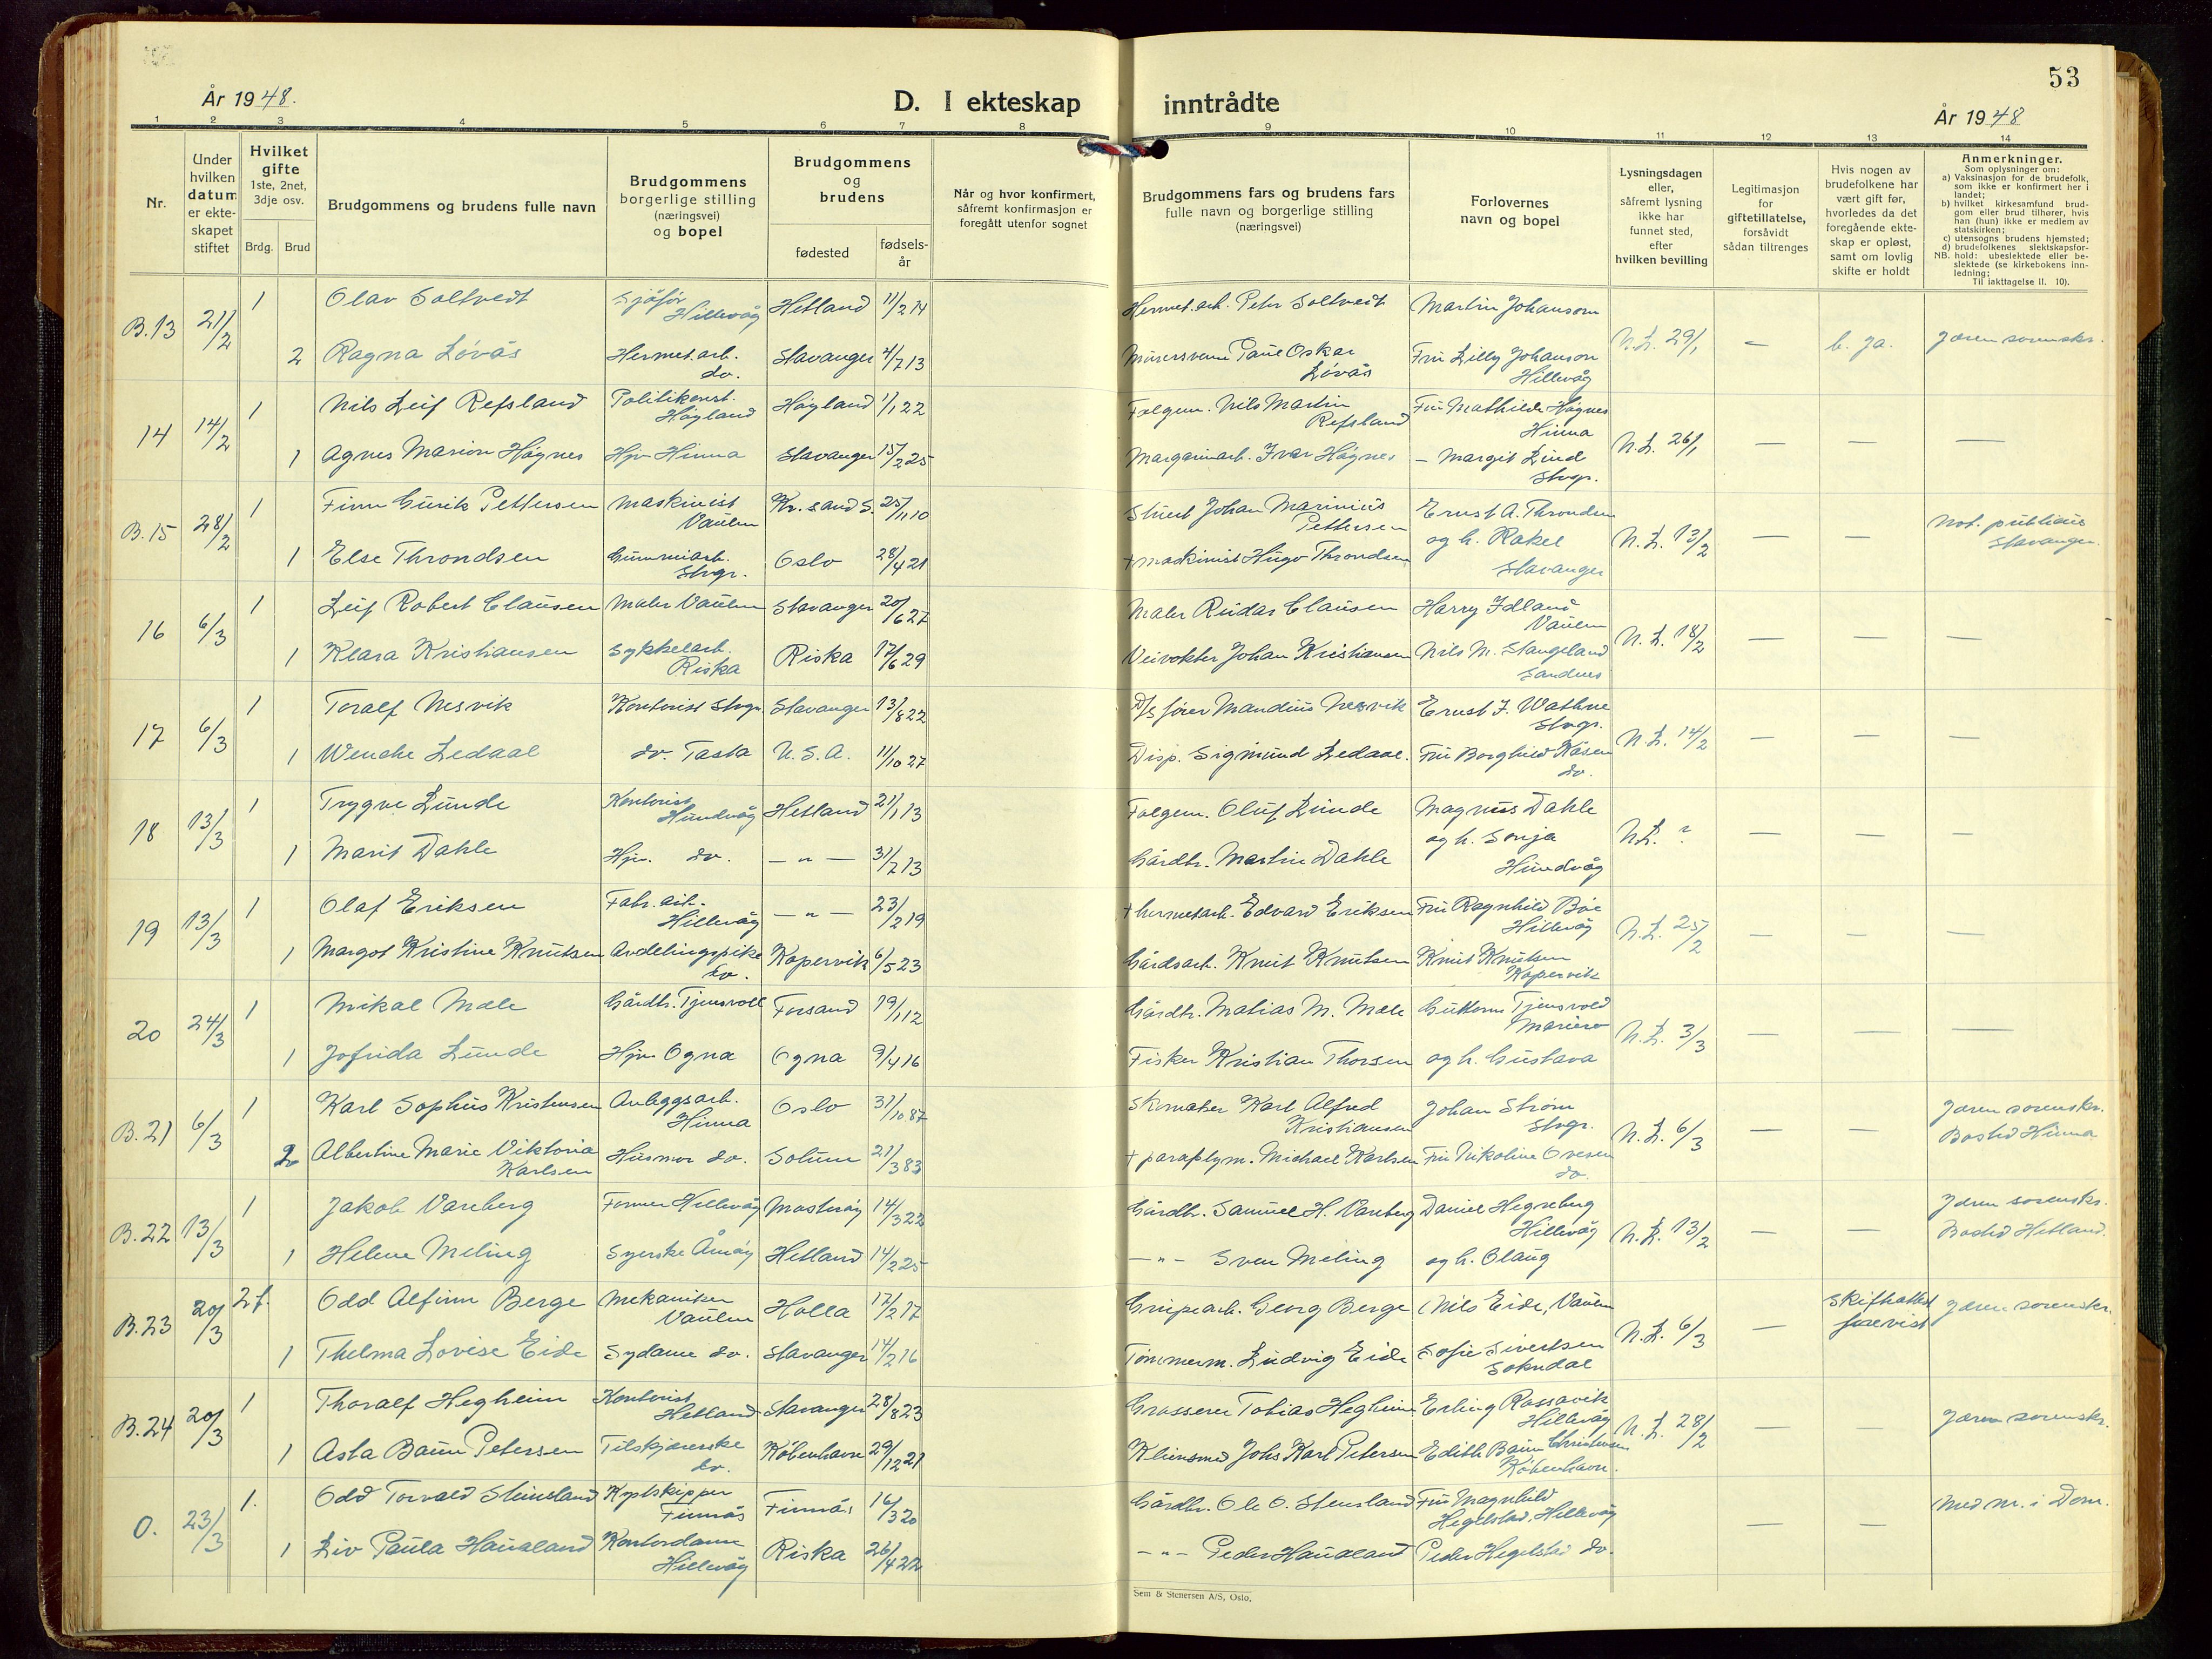 53
År 1948.
D. I ekteskap inntrådte
År 1948
1 2 3 4 5 6 7 8 9 10 11 12 13 14
Nr.
Under hvilken datum er ekte-skapet stiftet
Hvilket gifte 1ste, 2net, 3dje osv.
Brdg. Brud
Brudgommens og brudens fulle navn
Brudgommens borgerlige stilling (næringsvei) og bopel
Brudgommens og brudens
fødested
fødsels-år
Når og hvor konfirmert, såfremt konfirmasjon er foregått utenfor sognet
Brudgommens fars og brudens fars fulle navn og borgerlige stilling (næringsvei)
Forlovernes navn og bopel
Lysningsdagen eller, såfremt lysning ikke har funnet sted, efter hvilken bevilling
Legitimasjon for giftetillatelse, forsåvidt sådan tiltrenges
Hvis nogen av brudefolkene har vært gift før, hvorledes da det foregående ekte-skap er opløst, samt om lovlig skifte er holdt
Anmerkninger.
Som oplysninger om:
a) Vaksinasjon for de brudefolk, som ikke er konfirmert her i landet;
b) hvilket kirkesamfund brud-gom eller brud tilhører, hvis han (hun) ikke er medlem av statskirken;
c) utensogns brudens hjemsted;
d) brudefolkenes slektskapsfor-hold: ubeslektede eller be-slektede (se kirkebokens inn-ledning;
NB.
Til iakttagelse II. 10).
B.13 21/2 1 Olav Soltvedt Sjåfør Hillevåg Hetland 11/2 14 Hermet.arb. Peter Soltvedt Martin Johanson N.L. 29/1 — b. ja. Jæren sorenskr.
2 Ragna Løvås Hermet.arb. do. Stavanger 4/7 13 Murersvenn Paul Oskar Løvås Fru Lilly Johanson Hillevåg
14 14/2 1 Nils Leif Refsland Politikonst. Høyland Høyland 1/1 22 Folgem. Nils Martin Refsland Fru Mathilde Høgnes Hinna N.L. 26/1 — — —
1 Agnes Marion Høgnes Hjv. Hinna Stavanger 15/2 25 Margarinarb. Ivar Høgnes — Margit Lind Stvgr.
B.15 28/2 1 Finn Gurik Pettersen Maskinist Vaulen Kr.sand S. 25/1 10 Stuert Johan Marinius Pettersen Ernst A. Throndsen N.L. 13/2 — — Not. publicus Stavanger.
1 Else Throndsen Gummiarb. Stvgr. Oslo 28/4 21 + maskinist Hugo Throndsen og h. Rakel Stavanger
16 6/3 1 Leif Robert Clausen Maler Vaulen Stavanger 20/6 27 Maler Reidar Clausen Harry Idland Vaulen N.L. 18/2 — — —
1 Klara Kristiansen Sykkelarb. Riska Riska 17/6 29 Veivokter Johan Kristiansen Nils M. Stangeland Sandnes
17 6/3 1 Toralf Nesvik Kontorist Stvgr. Stavanger 13/8 22 D/s fører Mandius Nesvik Ernst F. Wathne Stvgr. N.L. 14/2 — — —
1 Wenche Ledaal do. Tasta U.S.A. 11/10 27 Disp. Sigmund Ledaal. Fru Borghild Kåsen do.
18 13/3 1 Trygve Lunde Kontorist Hundvåg Hetland 21/1 13 Folgem. Oluf Lunde Magnus Dahle N.L. ? — — —
1 Marit Dahle Hjv. do. — " — 31/2 13 Gårdbr. Martin Dahle og h. Sonja Hundvåg
19 13/3 1 Olaf Eriksen Fabr. arb. Hillevåg — " — 23/2 19 + hermetarb. Edvard Eriksen Fru Ragnhild Bøe Hillevåg N.L. 25/2 — — —
1 Margot Kristine Knutsen Avdelingspike do. Kopervik 6/5 23 Gårdsarb. Knut Knutsen Knut Knutsen Kopervik
20 24/3 1 Mikal Mæle Gårdbr. Tjensvoll Forsand 19/1 12 Gårdbr. Matias M. Mæle Guttorm Tjensvold Mariero N.L. 3/3 — — —
1 Jofrida Lunde Hjv. Ogna Ogna 9/4 16 Fisker Kristian Thorsen og h. Gustava
B.21 6/3 1 Karl Sophus Kristensen Anleggsarb. Hinna Oslo 31/10 87 Skomaker Karl Alfred Kristiansen Johan Strøm Stvgr. N.L. 6/3 — — Jæren sorenskr. Bosted Hinna
2 Albertine Marie Viktoria Karlsen Husmor do. Solum 21/3 83 + paraplym. Michael Karlsen Fru Nikoline Ovesen do.
B.22 13/3 1 Jakob Vareberg Former Hillevåg Mosterøy 14/3 22 Gårdbr. Samuel H. Vareberg Daniel Hegreberg Hillevåg N.L. 13/2 — — Jæren sorenskr. Bosted Hetland.
1 Helene Meling Syerske Åmøy Hetland 14/2 25 — " — Sven Meling og h. Olaug
B.23 20/3 2 f. Odd Alfinn Berge Mekaniker Vaulen Holla 17/2 17 Grupearb. Georg Berge Nils Eide, Vaulen N.L. 6/3 — Skifteattest forevist Jæren sorenskr.
1 Thelma Lovise Eide Sydame do. Stavanger 14/2 16 Tømmerm. Ludvig Eide Sofie Sivertsen Sokndal
B.24 20/3 1 Thoralf Hegheim Kontorist Hetland Stavanger 28/8 23 Grosserer Tobias Hegheim Erling Rossavik Hillevåg N.L. 28/2 — Jæren sorenskr.
1 Asta Baun Petersen Tilskjærerske do. København 29/12 21 Kleinsmed Johs Karl Petersen Edith Baun Christensen København.
0. 23/3 1. Odd Torvald Steinsland Kystskipper Finnås Finnås 16/3 20 Gårdbr. Ole O. Stensland Fru Magnhild Hegelstad, Hillevåg — — Med m. i Dom.
1 Liv Paula Haualand Kontordame Hillevåg Riska 26/4 22 — " — Peder Haualand Peder Hegelstad do.
Sem & Stenersen A/S, Oslo.